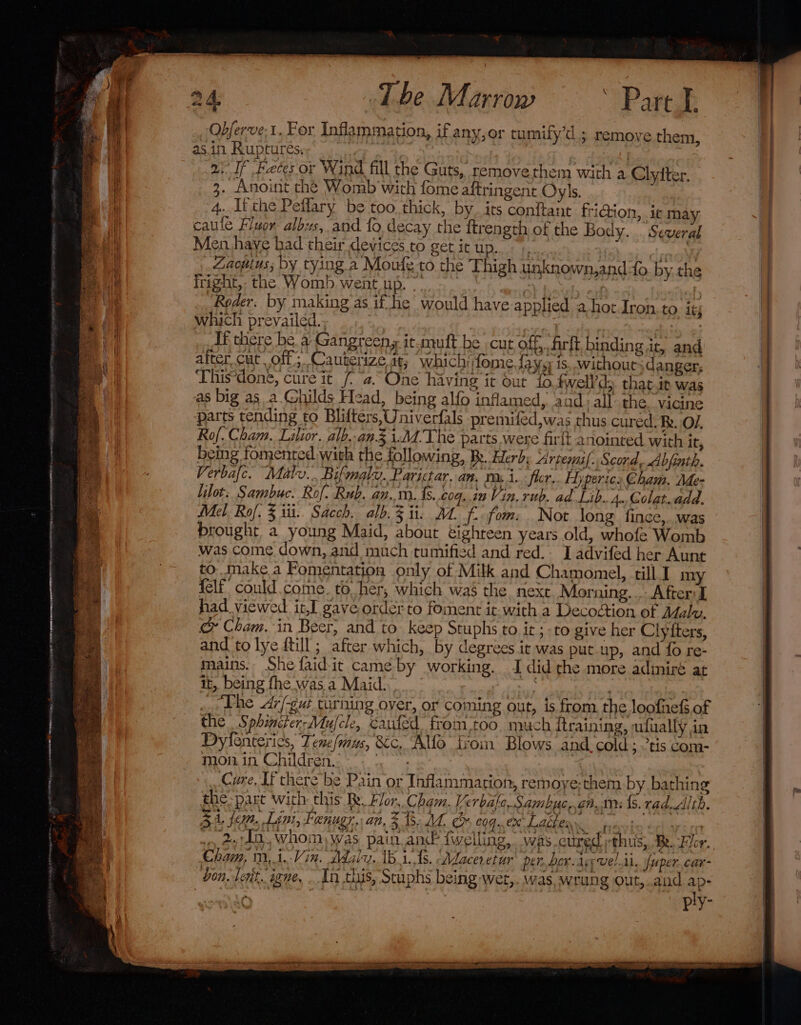 24 The Marrow Part I.
Obſerve, 1. For Inflammation, if any, or tumify'd; remove them,
as in Ruptures.
2. If Fæces or Wind fill the Guts, remove them with a Clyſter.
3. Anoint the Womb with ſome aſtringent Oyls.
4. If the Peſſary be too thick, by its conſtant friction, it may
cauſe Fluor albus, and ſo decay the ſtrength of the Body. Several
Men have had their devices to get it up.
Zacutus, by tying a Mouſe to the Thigh unknown, and ſo by the
fright, the Womb went up.
Roder. by making as if he would have applied a hot Iron to it;
which prevailed.
If there be a Gangreen, it muſt be cut off, firſt binding it, and
after cut off; Cauterize it, which ſome ſay, is without danger.
This done, cure it ſ. a. One having it out ſo ſwell'd, that it was
as big as a Childs Head, being alſo inflamed, and all the vicine
parts tending to Bliſters, Univerſals premiſed, was thus cured. ℞. Ol.
Roſ. Cham. Lilior. alb. an. ℥ i. M. The parts were firſt anointed with it,
being fomented with the following, ℞. Herb. Artemiſ. Scord. Abſinth.
Verbaſc. Malv. Biſmalv. Parietar. an. m. i. flor. Hyperic. Cham. Me-
lilot. Sambuc. Roſ. Rub. an. m. ſs. coq. in Vin. rub. ad Lib. 4. Colat. add.
Mel Roſ. ℥ iii. Sacch. alb. ℥ ii. M. f. fom. Not long ſince, was
brought a young Maid, about eighteen years old, whoſe Womb
was come down, and much tumified and red. I adviſed her Aunt
to make a Fomentation only of Milk and Chamomel, till I my
ſelf could come to her, which was the next Morning. After I
had viewed it, I gave order to foment it with a Decoction of Malv.
& Cham. in Beer, and to keep Stuphs to it; to give her Clyſters,
and to lye ſtill; after which, by degrees it was put up, and ſo re-
mains. She ſaid it came by working. I did the more admire at
it, being ſhe was a Maid.
The Arſ-gut turning over, or coming out, is from the looſneſs of
the Sphincter-Muſcle, cauſed from too much ſtraining, uſually in
Dyſenteries, Teneſmus, &c. Alſo from Blows and cold; 'tis com-
mon in Children.
Cure. If there be Pain or Inflammation, remove them by bathing
the part with this ℞. Flor. Cham. Verbaſc. Sambuc. an. m. ſs. rad. Alth.
℥ i. ſem. Lini, Fœnugr. an. ℥ ſs. M. & coq. ex Lacte.
2. In whom was pain and ſwelling, was cured thus, ℞. Flor.
Cham. m. i. Vin. Malv. ℔ i. ſs. Maceretur per hor. i. vel ii. ſuper car-
bon. lent. igne. In this, Stuphs being wet, was wrung out, and ap-
ply-